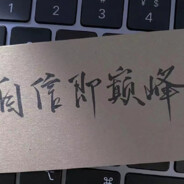 自信即巅峰